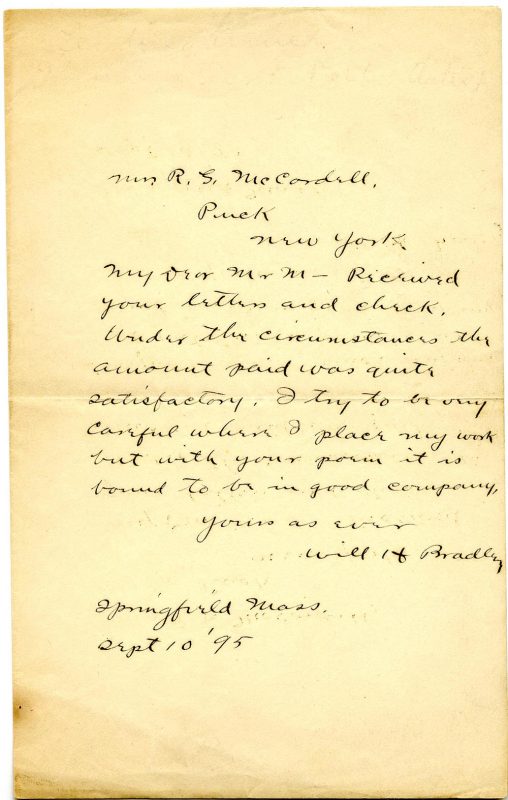 Mr R. G. McCardell,
Puck
New York
My Dear Mr M— Received
your letters and check.
Under the circumstances the
amount paid was quite
satisfactory. I try to be very
careful where I place my work
but with your poem it is
bound to be in good company.
Yours as ever
Will H Bradley
Springfield Mass.
Sept 10 '95